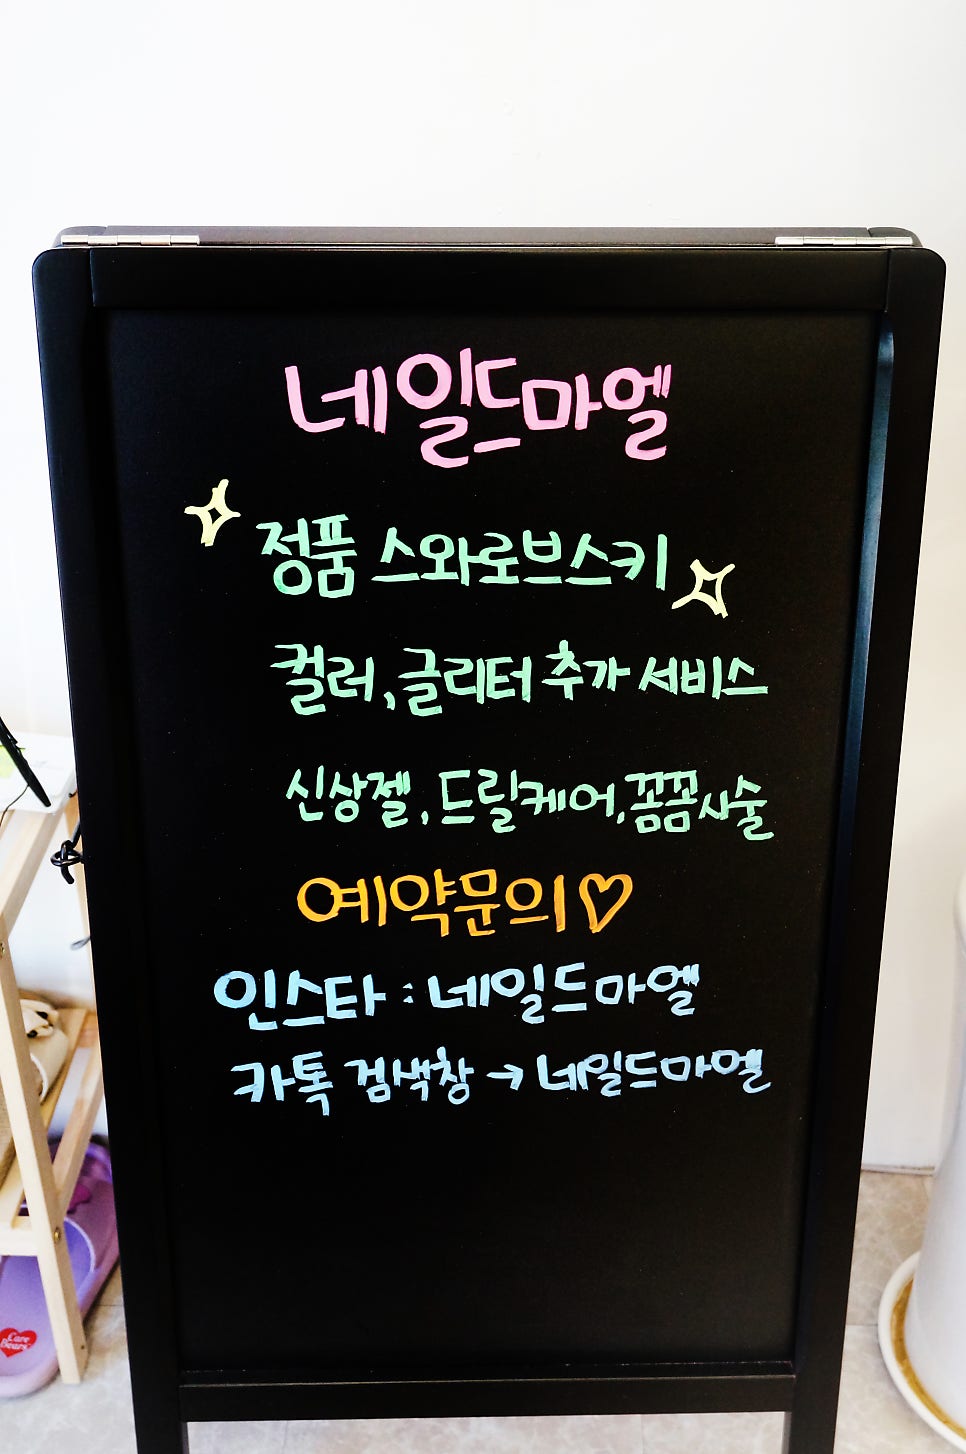 네일드마엘
정품 스와로브스키
컬러, 글리터 추가 서비스
신상젤, 드릴케어, 꼼꼼시술
예약문의♡
인스타 : 네일드마엘
카톡 검색창 → 네일드마엘
Care
Bears